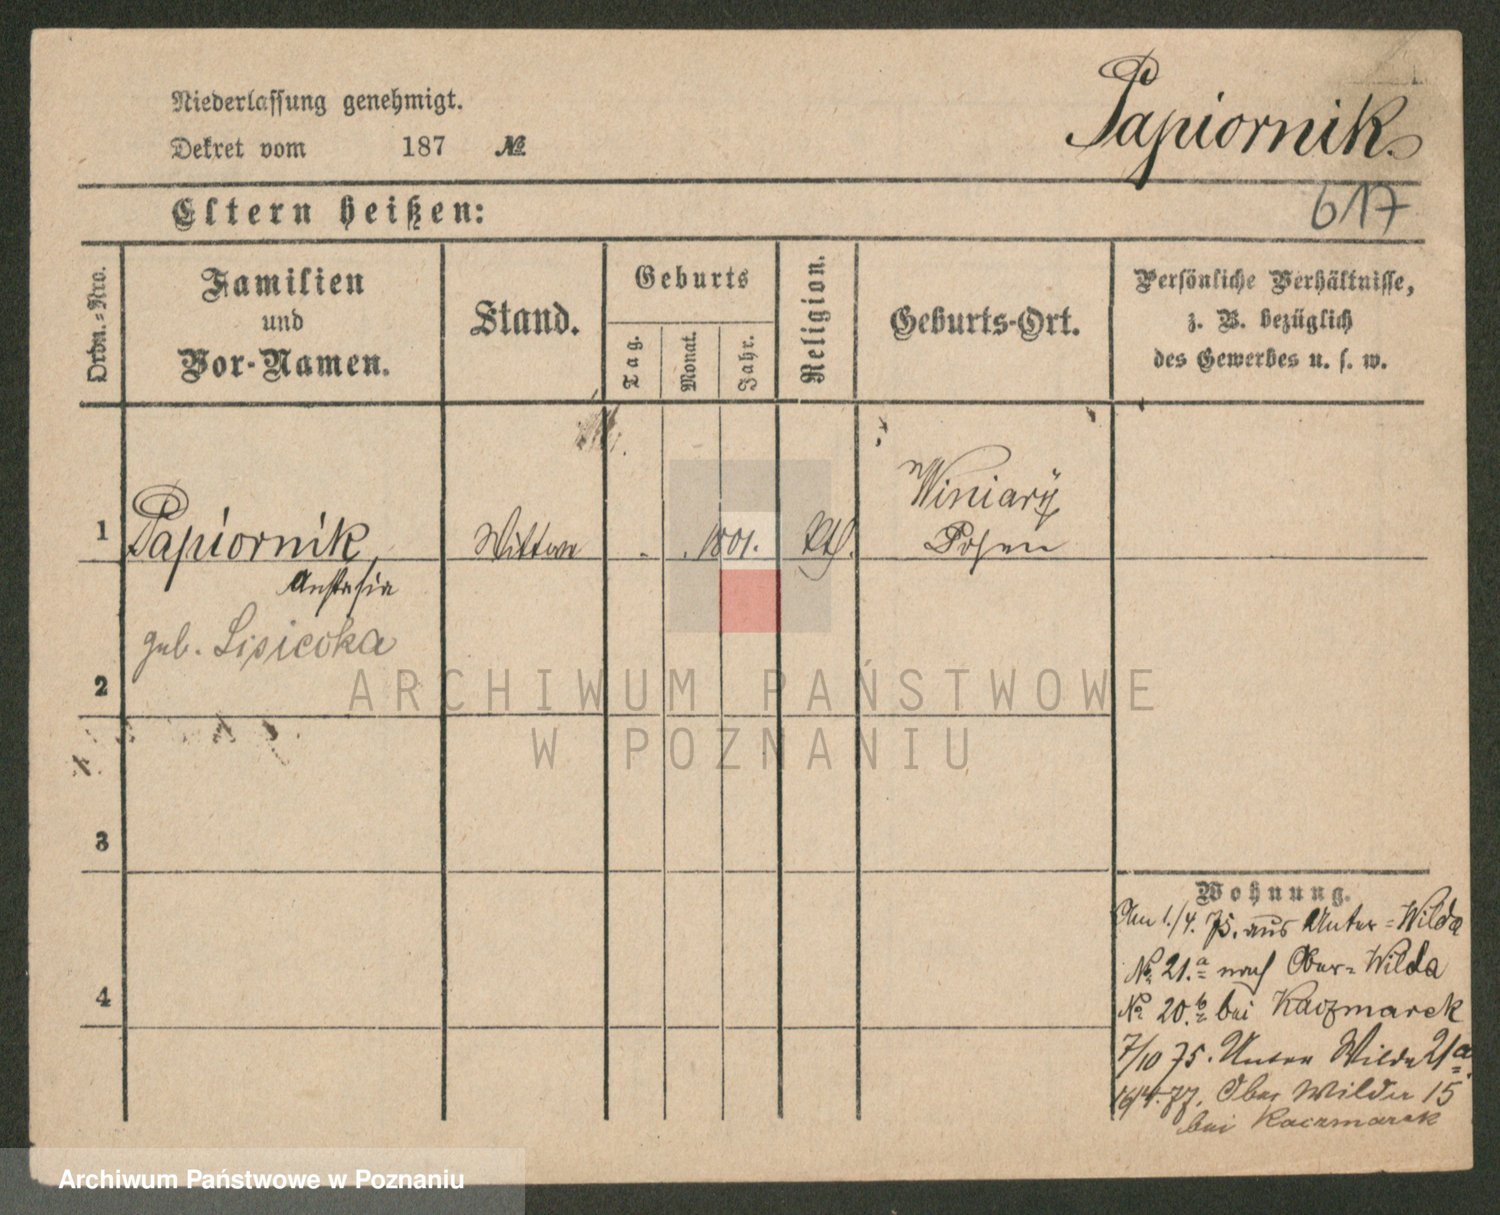 Niederlassung genehmigt.
Dekret vom 187 №
Papiornik.
617
Eltern heißen:
Ordn.=Nro.
Familien
und
Vor-Namen.
Stand.
Geburts
Tag.
Monat.
Jahr.
Religion.
Geburts-Ort.
Persönliche Verhältnisse,
z. B. bezüglich
des Gewerbes u. s. w.
1 Papiornik, Wittwe 1801. Kth. Winiary
Posen
Anstasia
geb. Lisiecka
2
3
4
Wohnung.
Am 1./4. 75. aus Unter=Wilda
№ 21.a nach Ober=Wilda
№ 20.b bei Kaczmarek
7/10 75. Unter Wilda 21a.
16/4. 77. Ober Wilda 15
bei Kaczmarek
ARCHIWUM PAŃSTWOWE
W POZNANIU
Archiwum Państwowe w Poznaniu